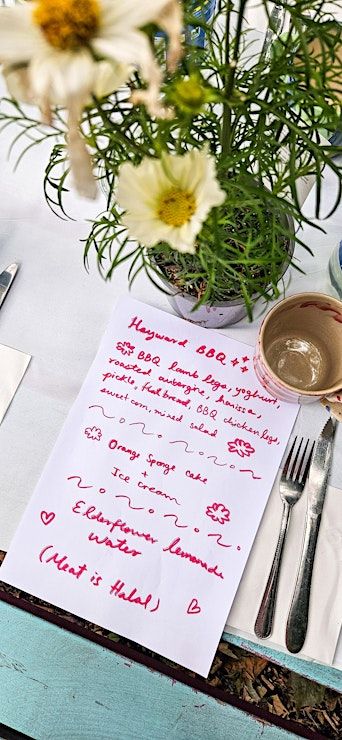 Hayward BBQ
BBQ lamb legs, yoghurt,
roasted aubergine, harissa,
pickle, flat bread, BBQ chicken legs,
sweet corn, mixed salad
Orange Sponge cake
+
Ice cream
Elderflower lemonade
Water
(Meat is Halal)